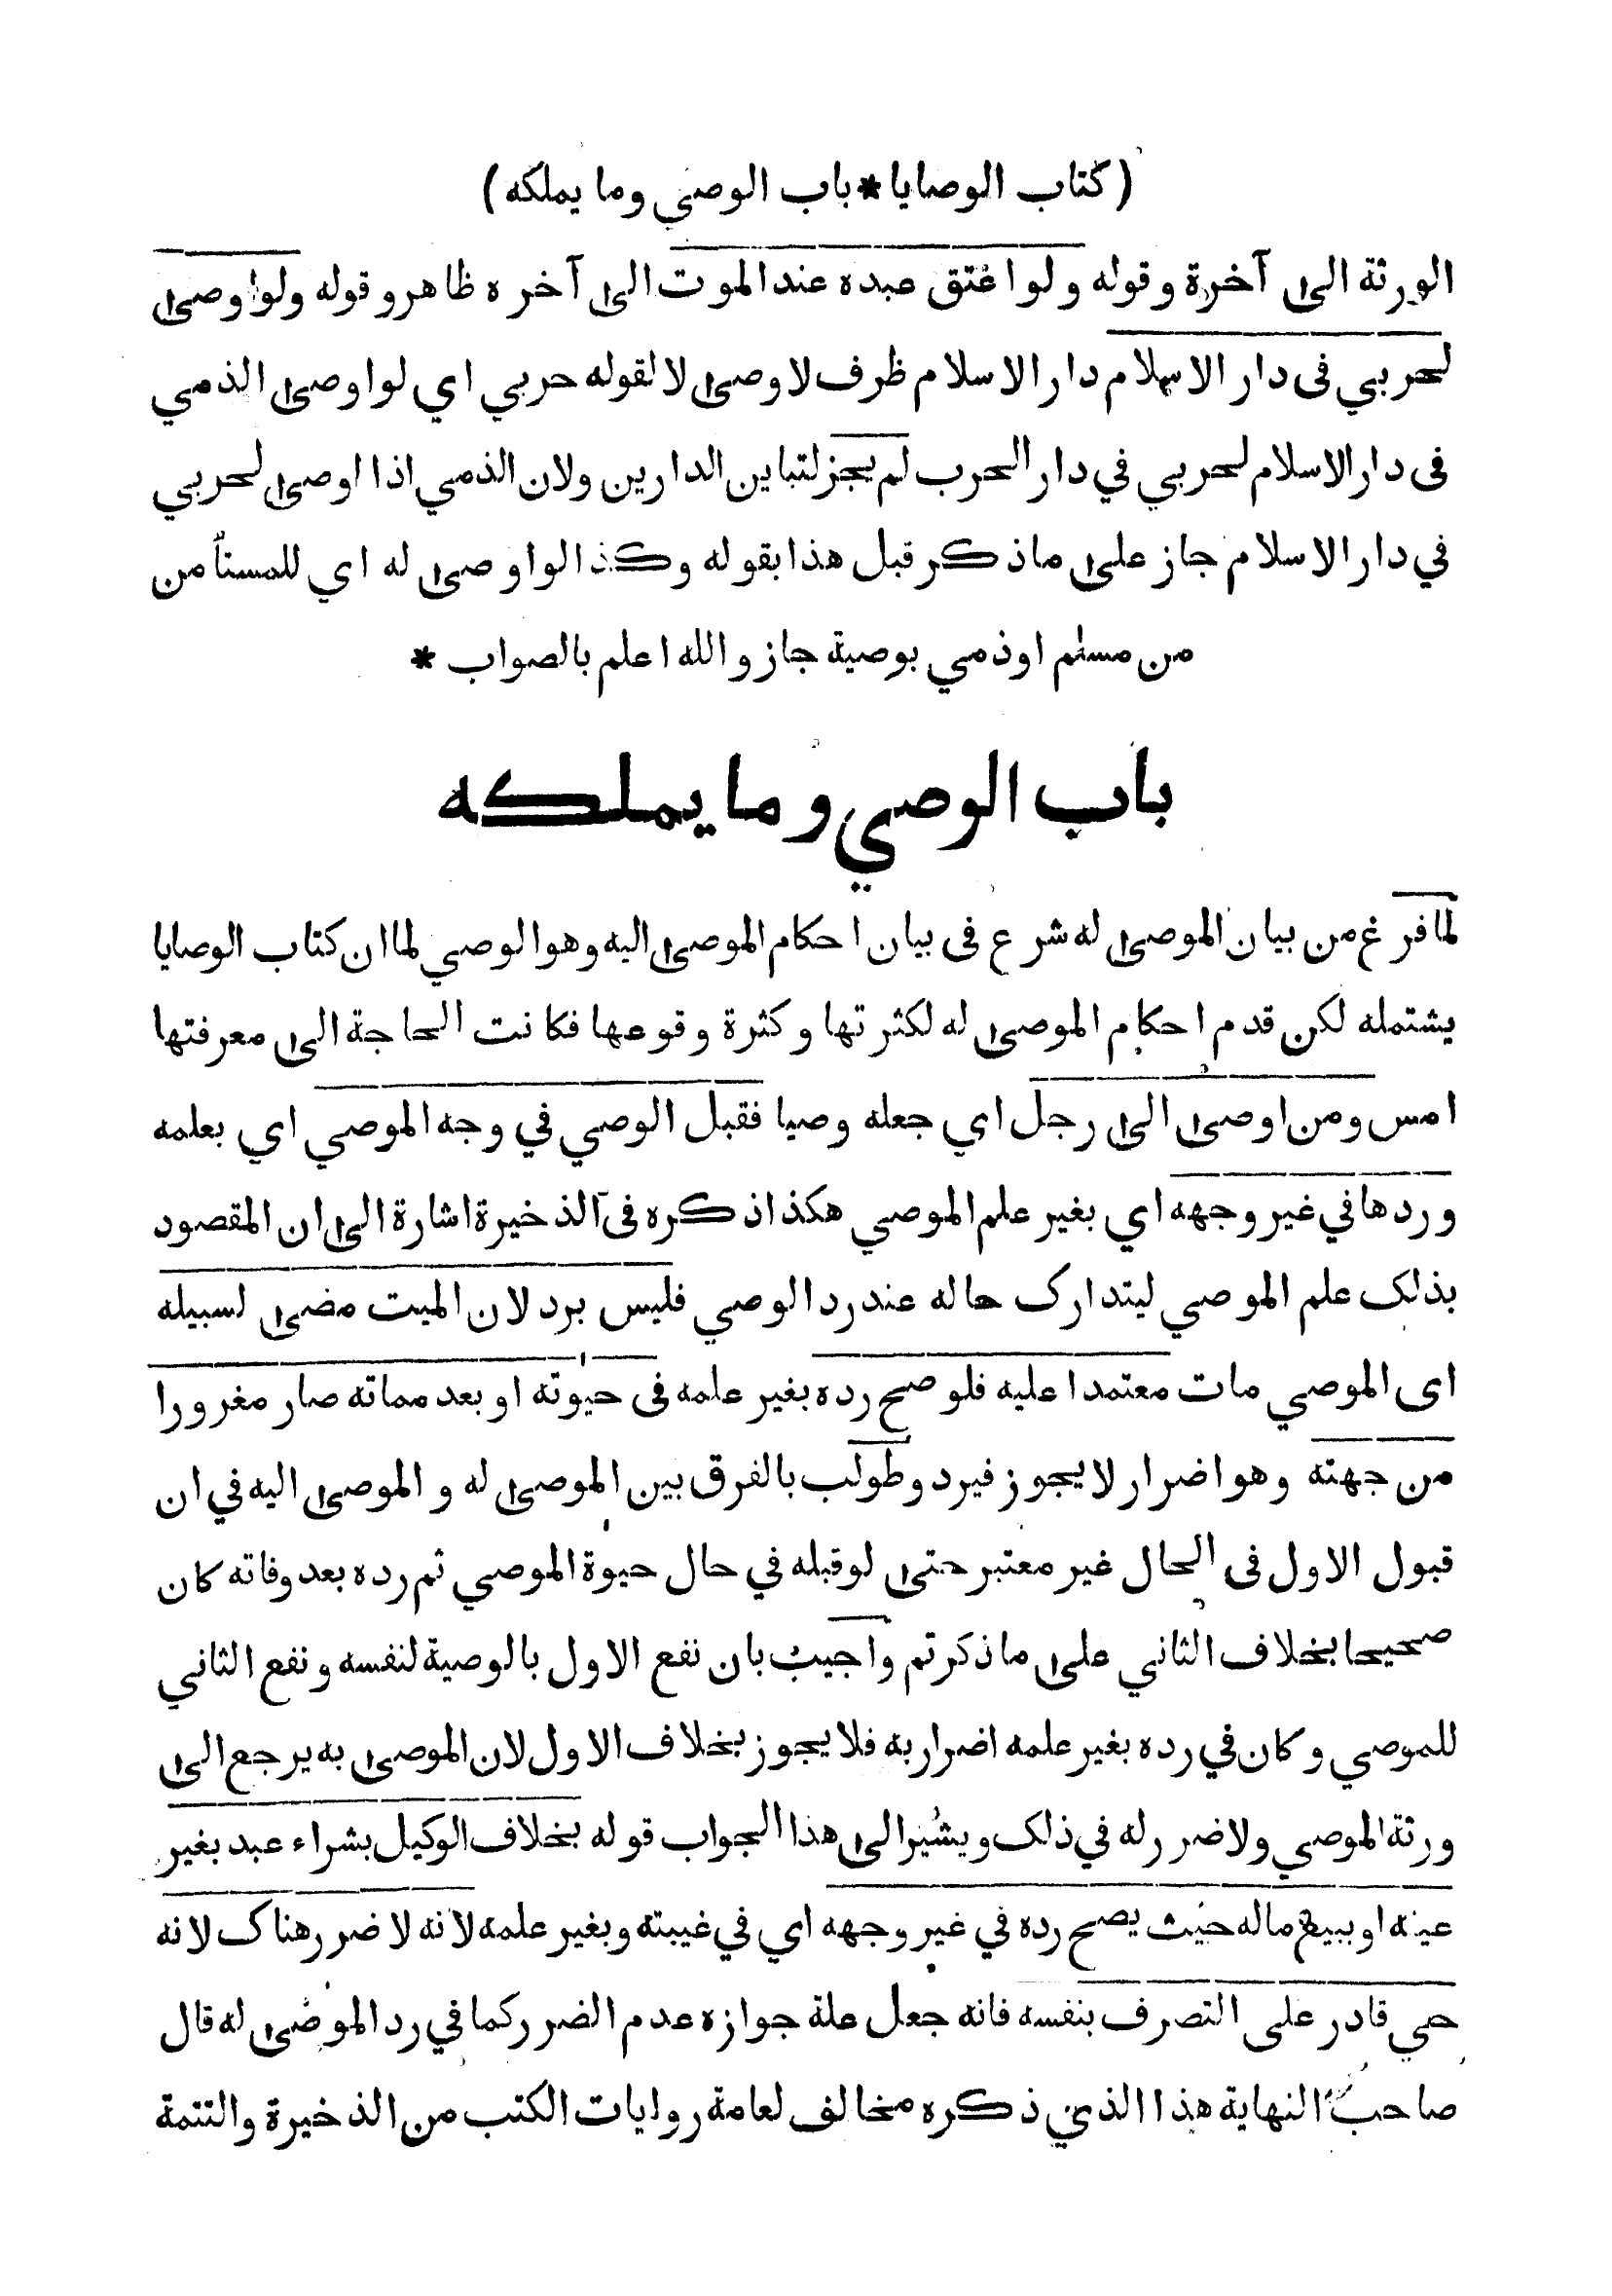 ( كتاب الوصايا * باب الوصي وما يملكه )
الورثة الى آخرة وقوله ولو اعتق عبده عند الموت الى آخره ظاهر وقوله ولو اوصى
لحربي فى دار الاسلام دار الاسلام ظرف لاوصى لا لقوله حربي اي لو اوصى الذمي
فى دار الاسلام لحربي في دار الحرب لم يجز لتباين الدارين ولان الذمي اذا اوصى لحربي
في دار الاسلام جاز على ما ذكر قبل هذا بقوله وكذا لو اوصى له اي للمستأمن
من مسلم او ذمي بوصية جاز والله اعلم بالصواب *
باب الوصي وما يملكه
لما فرغ من بيان الموصى له شرع فى بيان احكام الموصى اليه وهو الوصي لما ان كتاب الوصايا
يشتمله لكن قدم احكام الموصى له لكثرتها وكثرة وقوعها فكانت الحاجة الى معرفتها
امس ومن اوصى الى رجل اي جعله وصيا فقبل الوصي في وجه الموصي اي بعلمه
وردها في غير وجهه اي بغير علم الموصي هكذا ذكره فى الذخيرة اشارة الى ان المقصود
بذلك علم الموصي ليتدارك حاله عند رد الوصي فليس برد لان الميت مضى لسبيله
اى الموصي مات معتمدا عليه فلو صح رده بغير علمه فى حيوته او بعد مماته صار مغرورا
من جهته وهو اضرار لا يجوز فيرد وطولب بالفرق بين الموصى له و الموصى اليه في ان
قبول الاول فى الحال غير معتبر حتى لو قبله في حال حيوة الموصي ثم رده بعد وفاته كان
صحيحا بخلاف الثاني على ما ذكرتم واجيب بان نفع الاول بالوصية لنفسه ونفع الثاني
للموصي وكان في رده بغير علمه اضرار به فلا يجوز بخلاف الاول لان الموصى به يرجع الى
ورثة الموصي ولا ضرر له في ذلك ويشير الى هذا الجواب قوله بخلاف الوكيل بشراء عبد بغير
عينه او ببيع ماله حيث يصح رده في غير وجهه اي في غيبته وبغير علمه لانه لا ضرر هناك لانه
حي قادر على التصرف بنفسه فانه جعل علة جوازه عدم الضرر كما في رد الموصى له قال
صاحب النهاية هذا الذي ذكره مخالف لعامة روايات الكتب من الذخيرة والتتمة